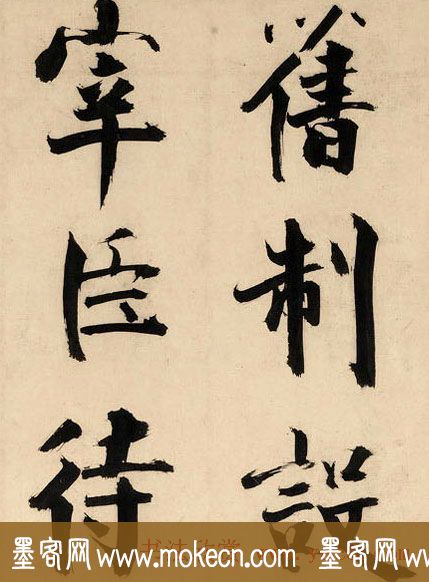 舊制設
宰臣待
墨客网 www.mokecn.com 墨客网